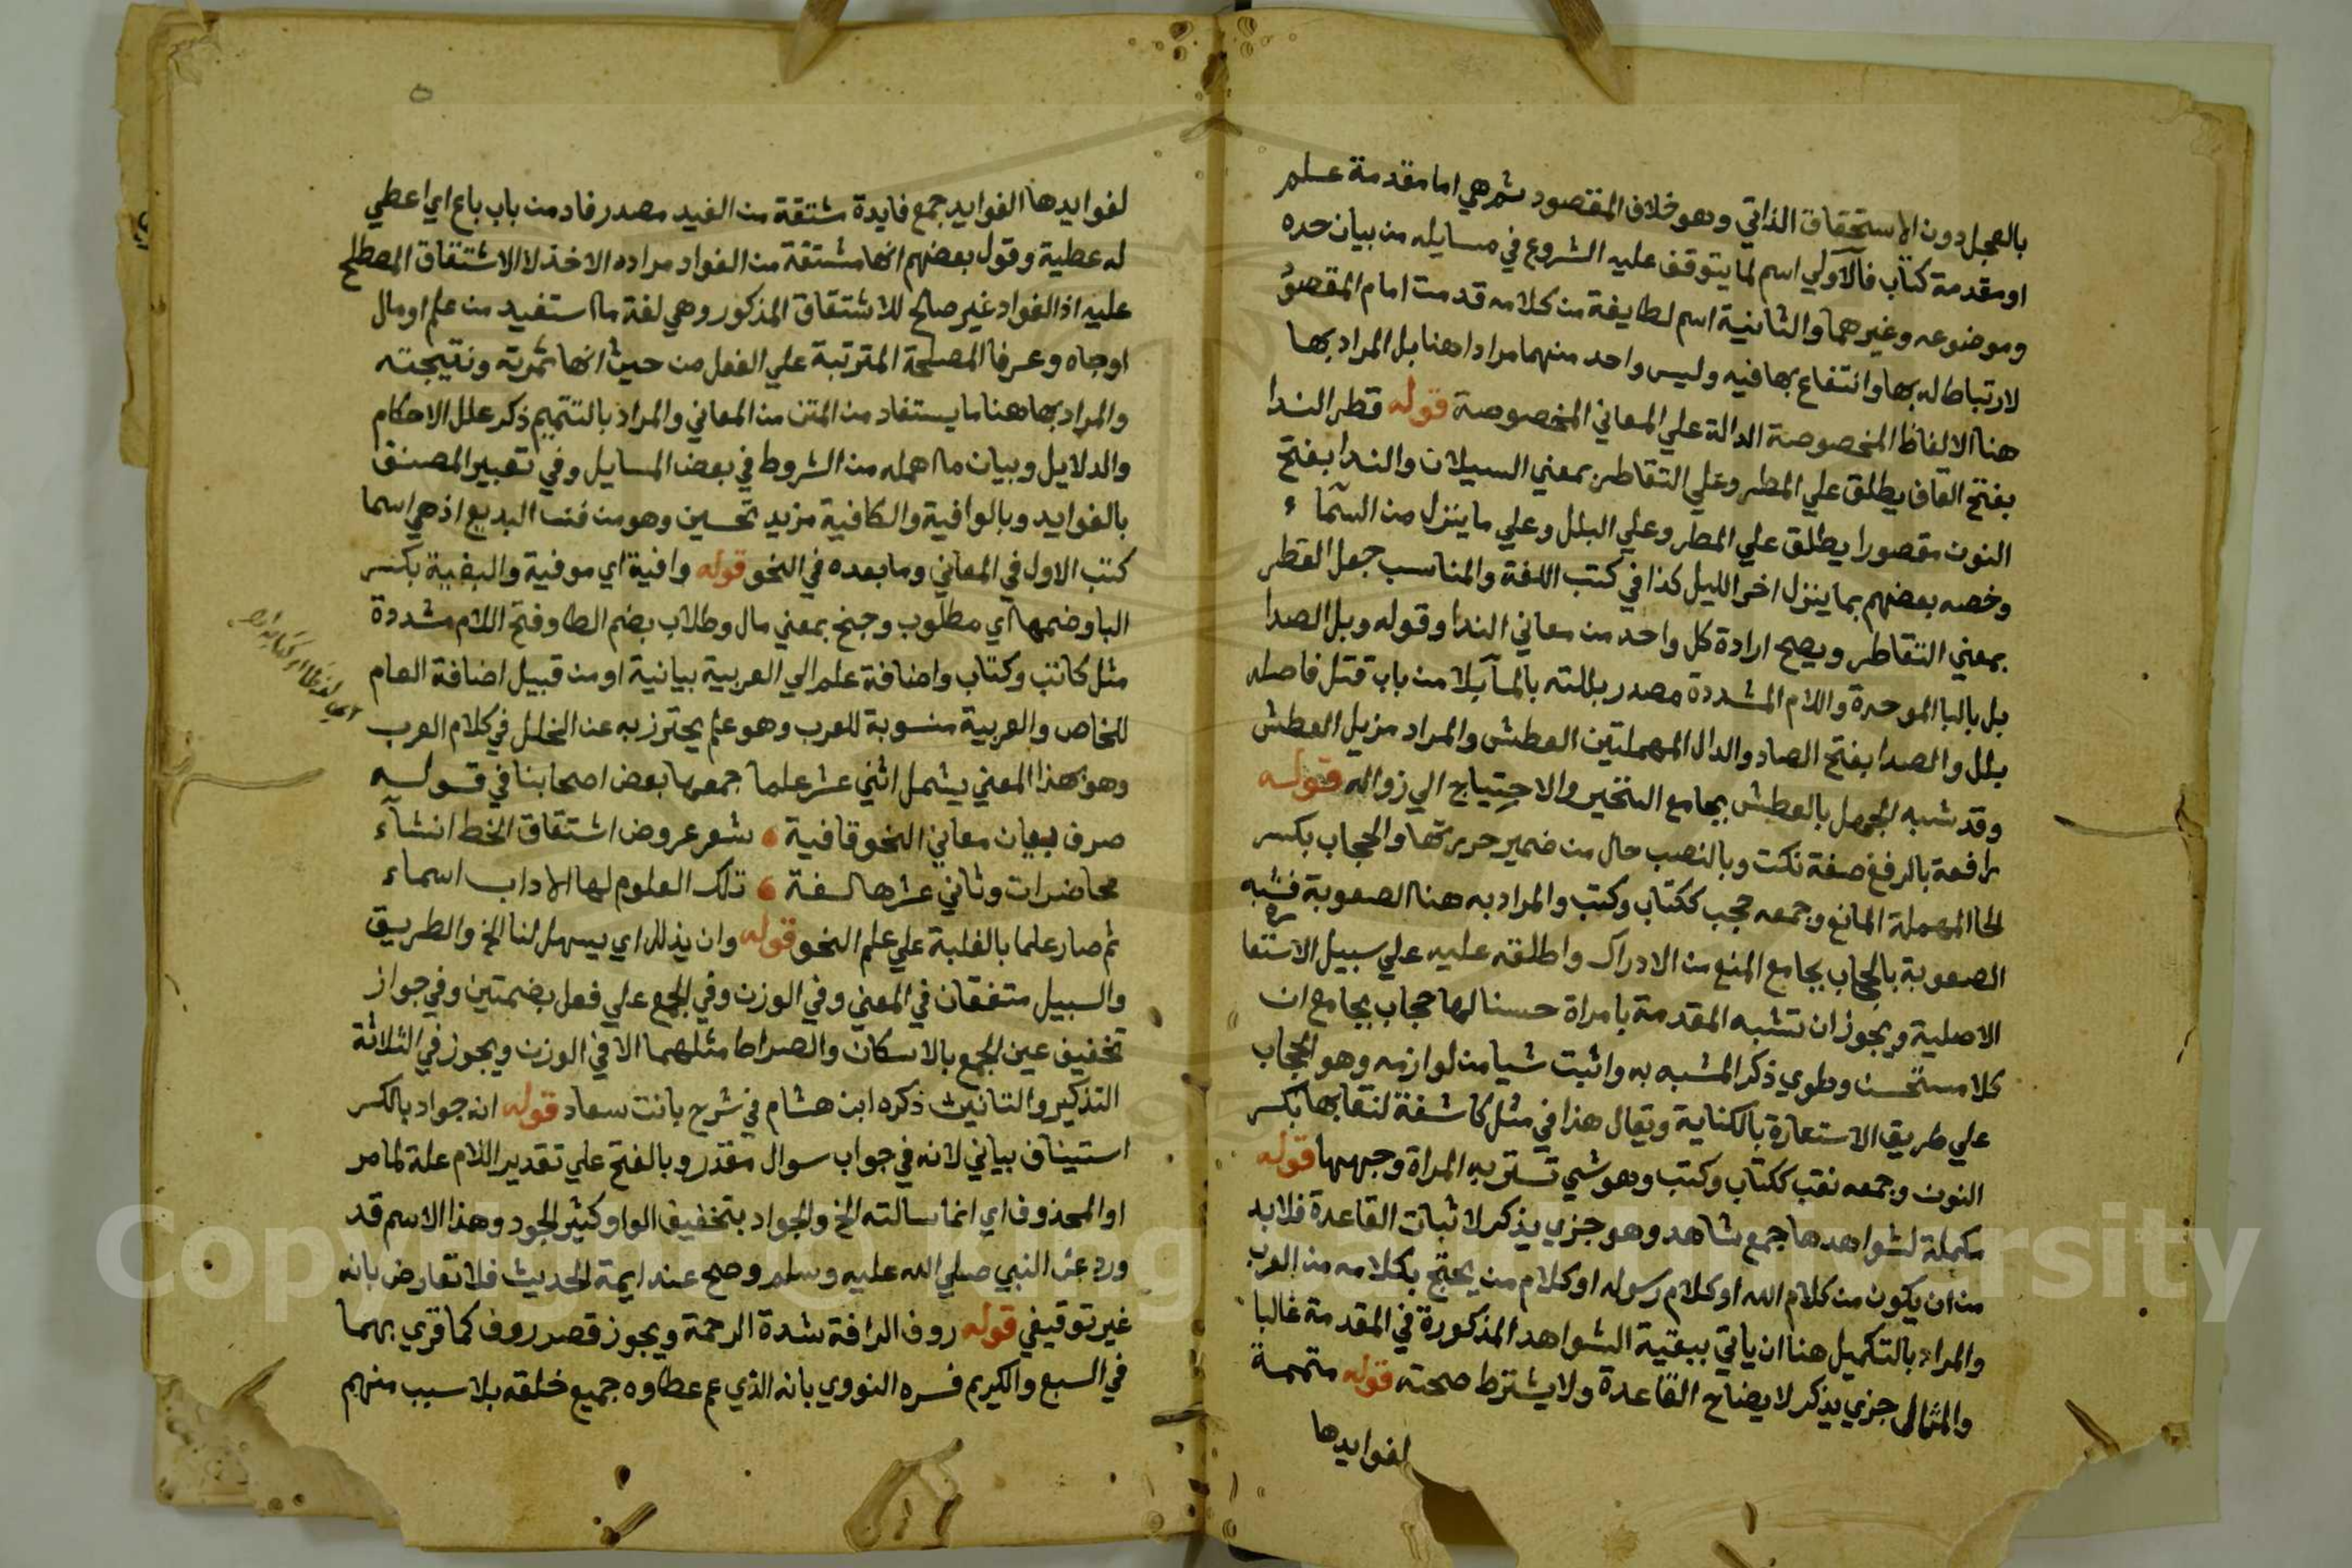 بالعجل دون الاستحقاق الذاتي وهو خلاف المقصود ثم هي اما مقدمة علم
او مقدمة كتاب فالاولي اسم لما يتوقف عليه الشروع في مسايله من بيان حده
وموضوعه وغيرهما والثانية اسم لطايفة من كلامه قدمت امام المقصود
لارتباط له بها وانتفاع بها فيه وليس واحد منهما مرادا هنا بل المراد بها
هنا الالفاظ المخصوصة الدالة علي المعاني المخصوصة قوله قطر الندا
بفتح القاف يطلق علي المطر وعلي التقاطر بمعني السيلان والندا بفتح
النون مقصورا يطلق علي المطر وعلي البلل وعلي ما ينزل من السماء
وخصه بعضهم بما ينزل اخر الليل كذا في كتب اللغة والمناسب جعل القطر
بمعني التقاطر ويصح ارادة كل واحد من معاني الندا وقوله وبل الصدا
بل بالبا الموحدة واللام المشددة مصدر بللته بالما بلا من باب قتل فاصله
بلل والصدا بفتح الصاد والدال المهملتين العطش والمراد مزيل العطش
وقد شبه الجهل بالعطش بجامع التحير والاحتياج الي زواله قوله
رافعة بالرفع صفة نكت وبالنصب حال من ضمير حررتها والحجاب بكسر
الحا المهملة المانع وجمعه حجب ككتاب وكتب والمراد به هنا الصعوبة فشبه
الصعوبة بالحجاب بجامع المنع من الادراك واطلقه عليه علي سبيل الاستعارة
الاصلية ويجوز ان تشبه المقدمة بامراة حسنا لها حجاب بجامع ان
كلا مستحسن وطوي ذكر المشبه به واثبت شيا من لوازمه وهو الحجاب
علي طريق الاستعارة بالكناية ويقال هذا في مثل كاشفة لنقابها بكسر
النون وجمعه نقب ككتاب وكتب وهو شي تستر به المراة وجهها قوله
مكملة لشواهدها جمع شاهد وهو جزي يذكر لاثبات القاعدة فلابد
من ان يكون من كلام الله او كلام رسوله او كلام من يحتج بكلامه من العرب
والمراد بالتكميل هنا ان ياتي ببقية الشواهد المذكورة في المقدمة غالبا
والمثال جزي يذكر لايضاح القاعدة ولا يشترط صحته قوله متممة
لفوايدها
لفوايدها الفوايد جمع فايدة مشتقة من الفيد مصدر فاد من باب باع اي اعطي
له عطية وقول بعضهم انها مشتقة من الفواد مراده الاخذ لا الاشتقاق المصطلح
عليه اذ الفواد غير صالح للاشتقاق المذكور وهي لغة ما استفيد من علم او مال
او جاه وعرفا المصلحة المترتبة علي الفعل من حيث انها ثمرته ونتيجته
والمراد بها هنا ما يستفاد من المتن من المعاني والمراد بالتتميم ذكر علل الاحكام
والدلايل وبيان ما اهمله من الشروط في بعض المسايل وفي تعبير المصنف
بالفوايد وبالوافية والكافية مزيد تحسين وهو من فن البديع اذ هي اسما
كتب الاول في المعاني وما بعده في النحو قوله وافية اي موفية والبغية بكسر
البا وضمها اي مطلوب وجنح بمعني مال وطلاب بضم الطا وفتح اللام مشددة
مثل كاتب وكتاب واضافة علم الي العربية بيانية او من قبيل اضافة العام
للخاص والعربية منسوبة للعرب وهو علم يحترز به عن الخلل في كلام العرب
وهو بهذا المعني يشمل اثني عشر علما جمعها بعض اصحابنا في قوله
صرف بيان معاني النحو قافية شعر عروض اشتقاق الخط انشاء
محاضرات وثاني عشرها لغة تلك العلوم لها الاداب اسماء
ثم صار علما بالغلبة علي علم النحو قوله وان يذلل اي يسهل لنا الخ والطريق
والسبيل متفقان في المعني وفي الوزن وفي الجمع علي فعل بضمتين وفي جواز
تخفيف عين الجمع بالاسكان والصراط مثلهما الا في الوزن ويجوز في الثلاثة
التذكير والتانيث ذكره ابن هشام في شرح بانت سعاد قوله انه جواد بالكسر
استيناف بياني لانه في جواب سوال مقدر وبالفتح علي تقدير اللام علة لما مر
او المحذوف اي انما سالته الخ والجواد بتخفيف الواو كثير الجود وهذا الاسم قد
ورد عن النبي صلي الله عليه وسلم وصح عند ايمة الحديث فلا تعارض بانه
غير توقيفي قوله روف الرافة شدة الرحمة ويجوز قصر روف كما قري بهما
في السبع والكريم فسره النووي بانه الذي عم عطاوه جميع خلقه بلا سبب منهم
Copyright © King Saud University